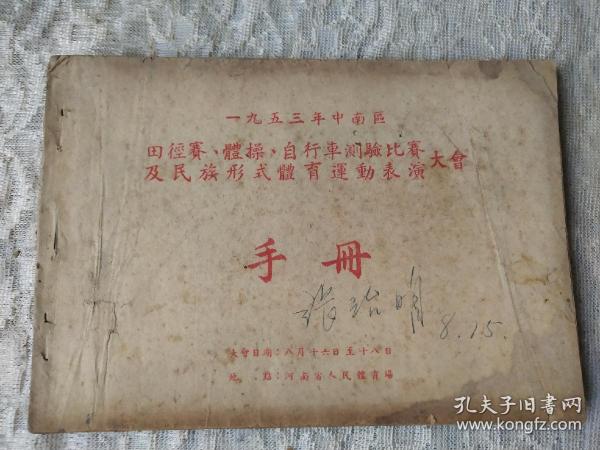 一九五三年中南區
田徑賽、體操、自行車測驗比賽
及民族形式體育運動表演
大會
手冊
張治明
8.15.
大會日期：八月十六日至十八日
地 點：河南省人民體育場
孔夫子旧书网
www.kongfz.com